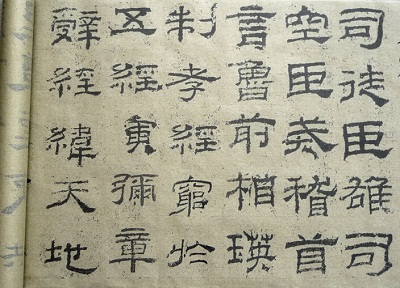 司徒臣雄司
空臣戒稽首
言魯前相瑛
制孝經窮於
五經寅彌章
辭經緯天地